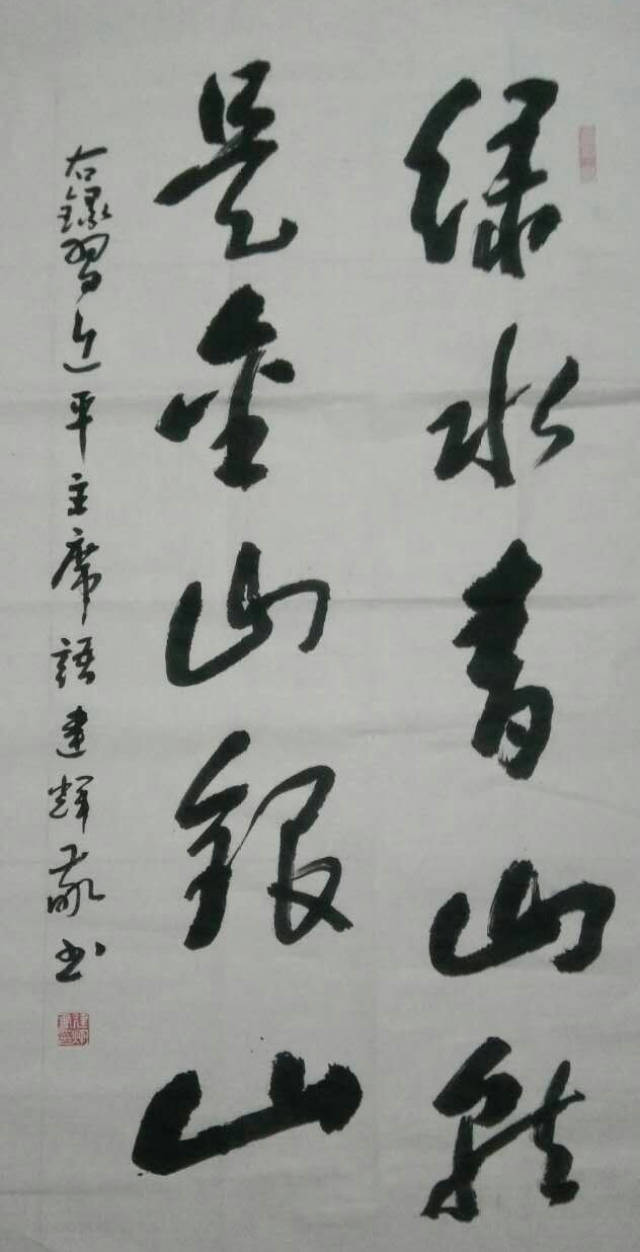 绿水青山就
是金山银山
右録習近平主席語建辉敬书